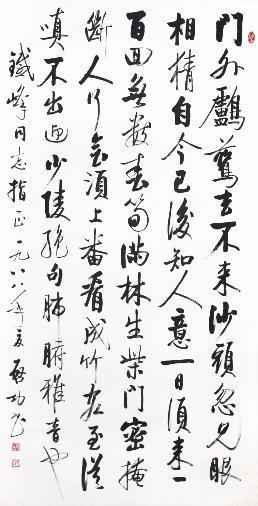 門外鸕鶿去不来沙頭忽見眼
相猜自今已後知人意一日須来一
百回無數春筍滿林生柴門密掩
斷人行會須上番看成竹客至從
嗔不出迎少陵絕句肺腑雅音也
鐵峰同志指正一九八八年夏啟功